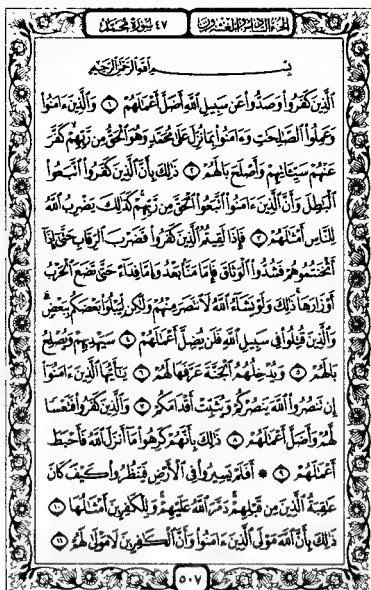 الجزء السادس والعشرون ٤٧ سورة محمد
بسم الله الرحمن الرحيم
ٱلَّذِينَ كَفَرُوا۟ وَصَدُّوا۟ عَن سَبِيلِ ٱللَّهِ أَضَلَّ أَعْمَـٰلَهُمْ ١ وَٱلَّذِينَ ءَامَنُوا۟
وَعَمِلُوا۟ ٱلصَّـٰلِحَـٰتِ وَءَامَنُوا۟ بِمَا نُزِّلَ عَلَىٰ مُحَمَّدٍ وَهُوَ ٱلْحَقُّ مِن رَّبِّهِمْ كَفَّرَ
عَنْهُمْ سَيِّـَٔاتِهِمْ وَأَصْلَحَ بَالَهُمْ ٢ ذَٰلِكَ بِأَنَّ ٱلَّذِينَ كَفَرُوا۟ ٱتَّبَعُوا۟
ٱلْبَـٰطِلَ وَأَنَّ ٱلَّذِينَ ءَامَنُوا۟ ٱتَّبَعُوا۟ ٱلْحَقَّ مِن رَّبِّهِمْ كَذَٰلِكَ يَضْرِبُ ٱللَّهُ
لِلنَّاسِ أَمْثَـٰلَهُمْ ٣ فَإِذَا لَقِيتُمُ ٱلَّذِينَ كَفَرُوا۟ فَضَرْبَ ٱلرِّقَابِ حَتَّىٰٓ إِذَآ
أَثْخَنتُمُوهُمْ فَشُدُّوا۟ ٱلْوَثَاقَ فَإِمَّا مَنًّۢا بَعْدُ وَإِمَّا فِدَآءً حَتَّىٰ تَضَعَ ٱلْحَرْبُ
أَوْزَارَهَا ذَٰلِكَ وَلَوْ يَشَآءُ ٱللَّهُ لَٱنتَصَرَ مِنْهُمْ وَلَـٰكِن لِّيَبْلُوَا۟ بَعْضَكُم بِبَعْضٍ
وَٱلَّذِينَ قُتِلُوا۟ فِى سَبِيلِ ٱللَّهِ فَلَن يُضِلَّ أَعْمَـٰلَهُمْ ٤ سَيَهْدِيهِمْ وَيُصْلِحُ
بَالَهُمْ ٥ وَيُدْخِلُهُمُ ٱلْجَنَّةَ عَرَّفَهَا لَهُمْ ٦ يَـٰٓأَيُّهَا ٱلَّذِينَ ءَامَنُوٓا۟
إِن تَنصُرُوا۟ ٱللَّهَ يَنصُرْكُمْ وَيُثَبِّتْ أَقْدَامَكُمْ ٧ وَٱلَّذِينَ كَفَرُوا۟ فَتَعْسًا
لَّهُمْ وَأَضَلَّ أَعْمَـٰلَهُمْ ٨ ذَٰلِكَ بِأَنَّهُمْ كَرِهُوا۟ مَآ أَنزَلَ ٱللَّهُ فَأَحْبَطَ
أَعْمَـٰلَهُمْ ٩ ۞ أَفَلَمْ يَسِيرُوا۟ فِى ٱلْأَرْضِ فَيَنظُرُوا۟ كَيْفَ كَانَ
عَـٰقِبَةُ ٱلَّذِينَ مِن قَبْلِهِمْ دَمَّرَ ٱللَّهُ عَلَيْهِمْ وَلِلْكَـٰفِرِينَ أَمْثَـٰلُهَا ١٠
ذَٰلِكَ بِأَنَّ ٱللَّهَ مَوْلَى ٱلَّذِينَ ءَامَنُوا۟ وَأَنَّ ٱلْكَـٰفِرِينَ لَا مَوْلَىٰ لَهُمْ ١١
٥٠٧